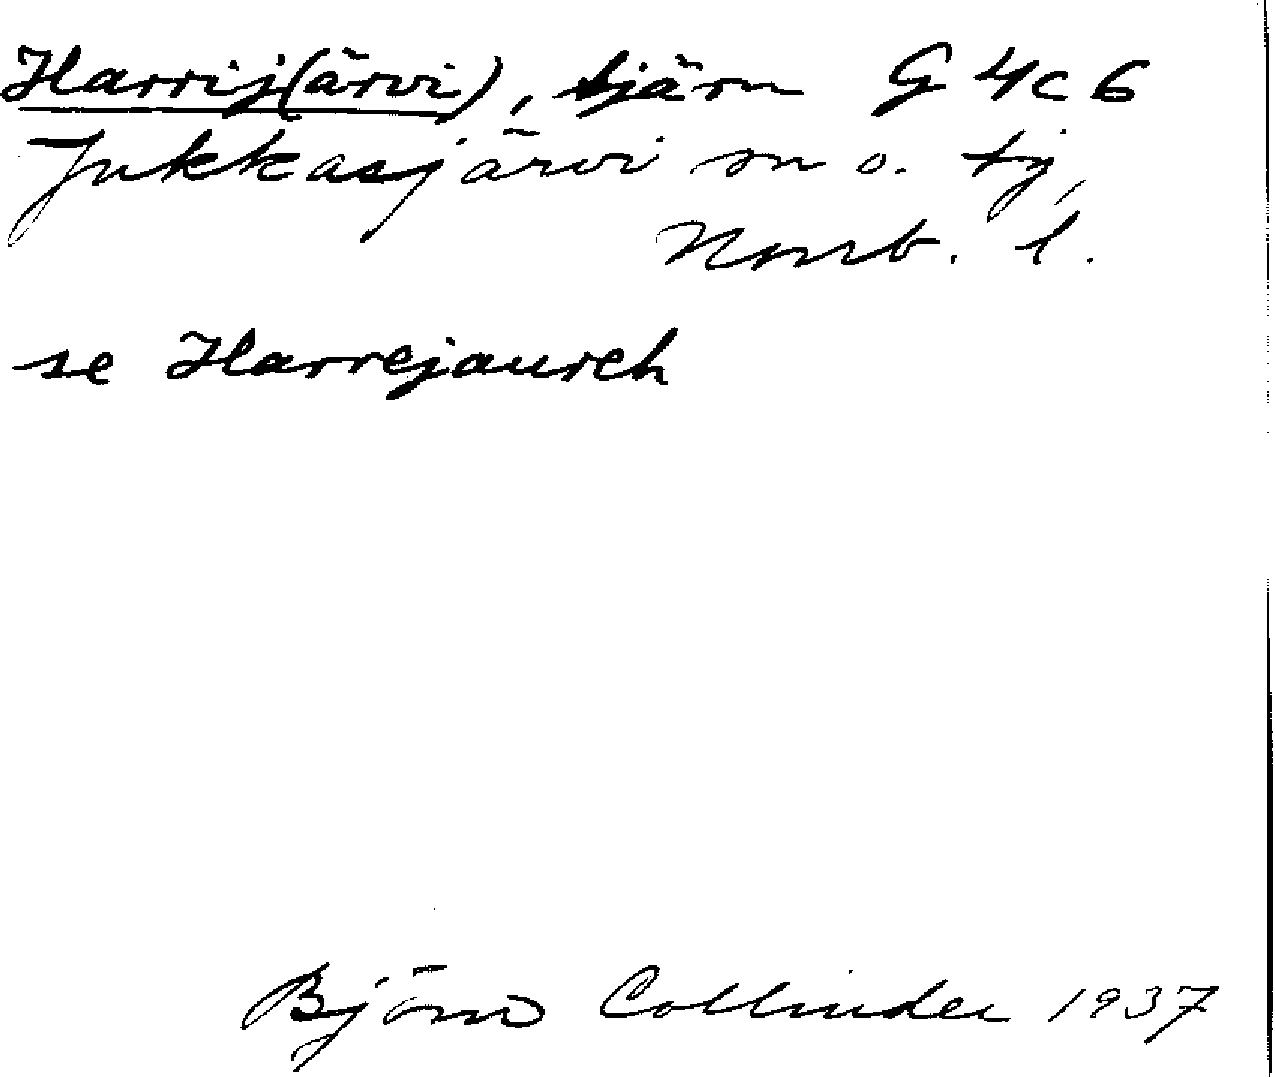 Harrij(ärvi), tjärn G 4c 6
Jukkasjärvi sn o. tg,
Norrb. l.
se Harrejaureh
Björn Collinder 1937